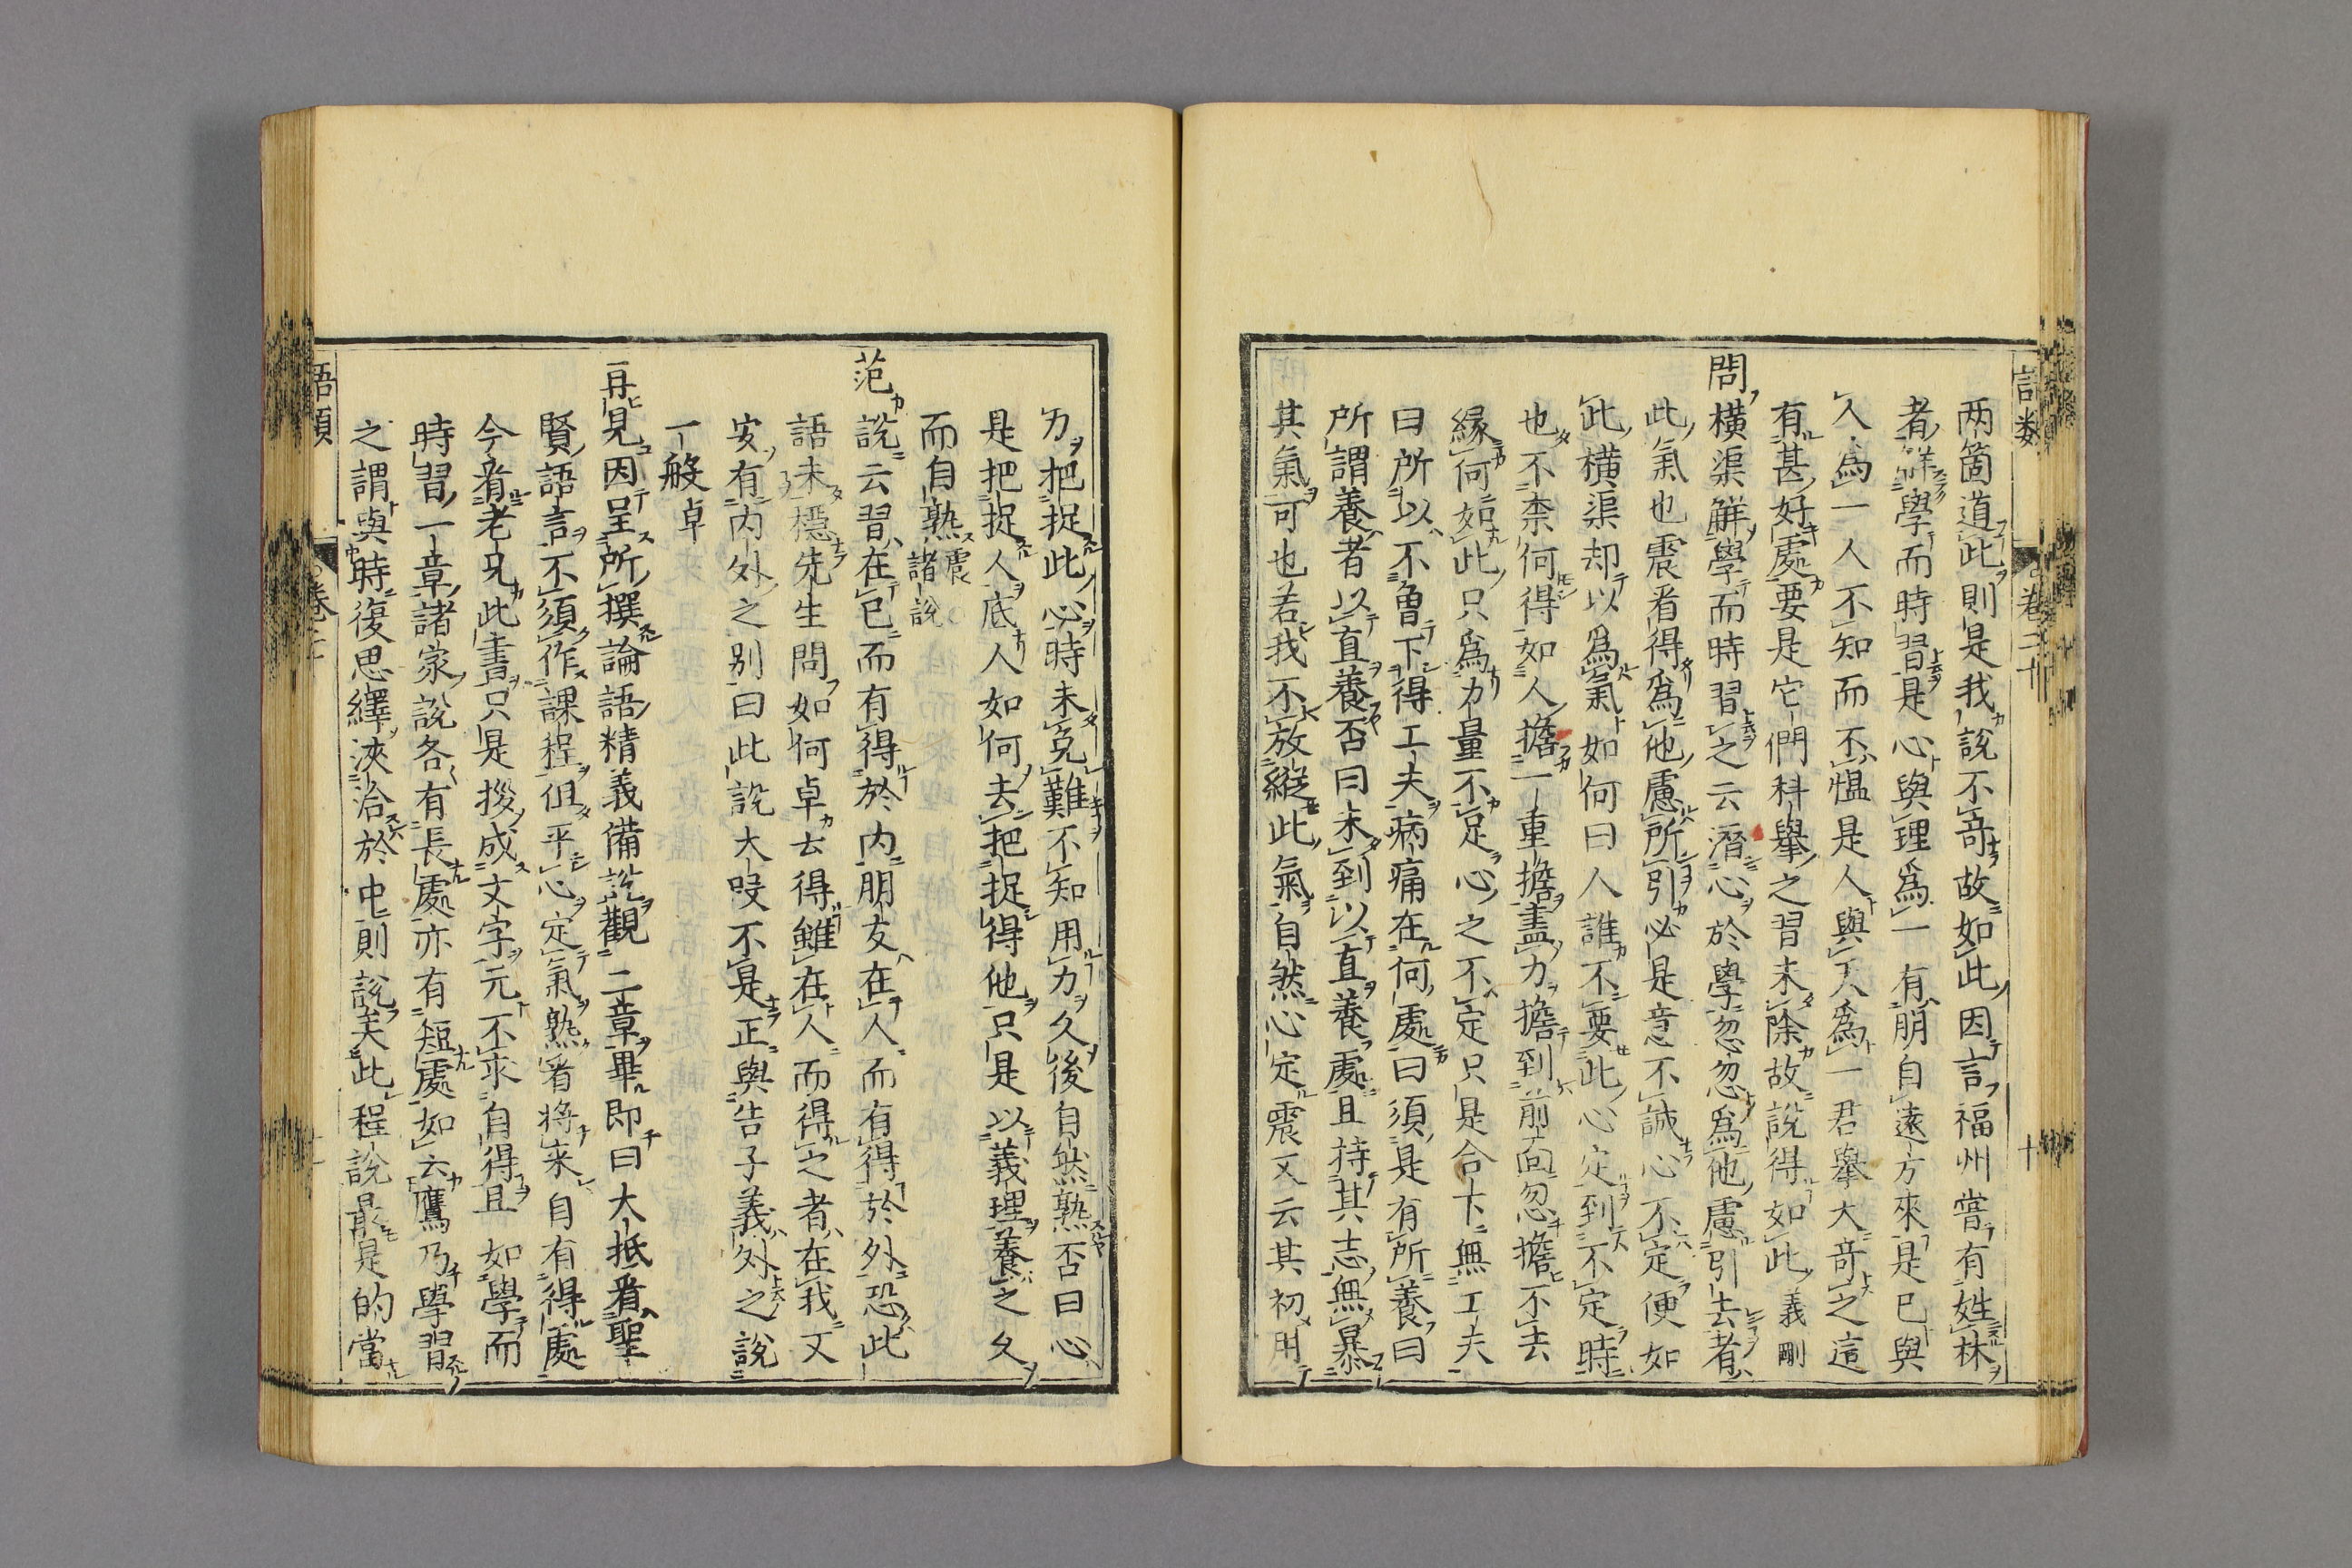 两箇道此則是我說不竒故如此因言福州嘗有姓林
者解學而時習是心與理爲一有朋自遠方來是已與
人爲一人不知而不愠是人與天爲一君舉大竒之這
有甚好處要是它們科舉之習未除故說得如此義剛
問橫渠解學而時習之云潛心於學忽忽爲他慮引去者
此氣也震看得爲他慮所引必是意不誠心不定便如
此橫渠却以爲氣如何曰人誰不要此心定到不定時
也不柰何得如人擔一重擔盡力擔到前面忽擔不去
緣何如此只爲力量不足心之不定只是合下無工夫
曰所以不曾下得工夫病痛在何處曰須是有所養曰
所謂養者以直養否曰未到以直養處且持其志無暴
其氣可也若我不放縱此氣自然心定震又云其初用
力把捉此心時未免難不知用力久後自然熟否曰心
是把捉人底人如何去把捉得他只是以義理養之久
而自熟震諸說
范說云習在已而有得於内朋友在人而有得於外恐此
語未穩先生問如何卓云得雖在人而得之者在我又
安有内外之别曰此說大叚不是正與告子義外之說
一般卓
再見因呈所撰論語精義備說觀二章畢即曰大抵看聖
賢語言不須作課程但平心定氣熟看將來自有得處
今看老兄此書只是拶成文字元不求自得且如學而
時習一章諸家說各有長處亦有短處如云鷹乃學習
之謂與時復思繹浹洽於中則說矣此程說最是的當
語類
卷二十
十